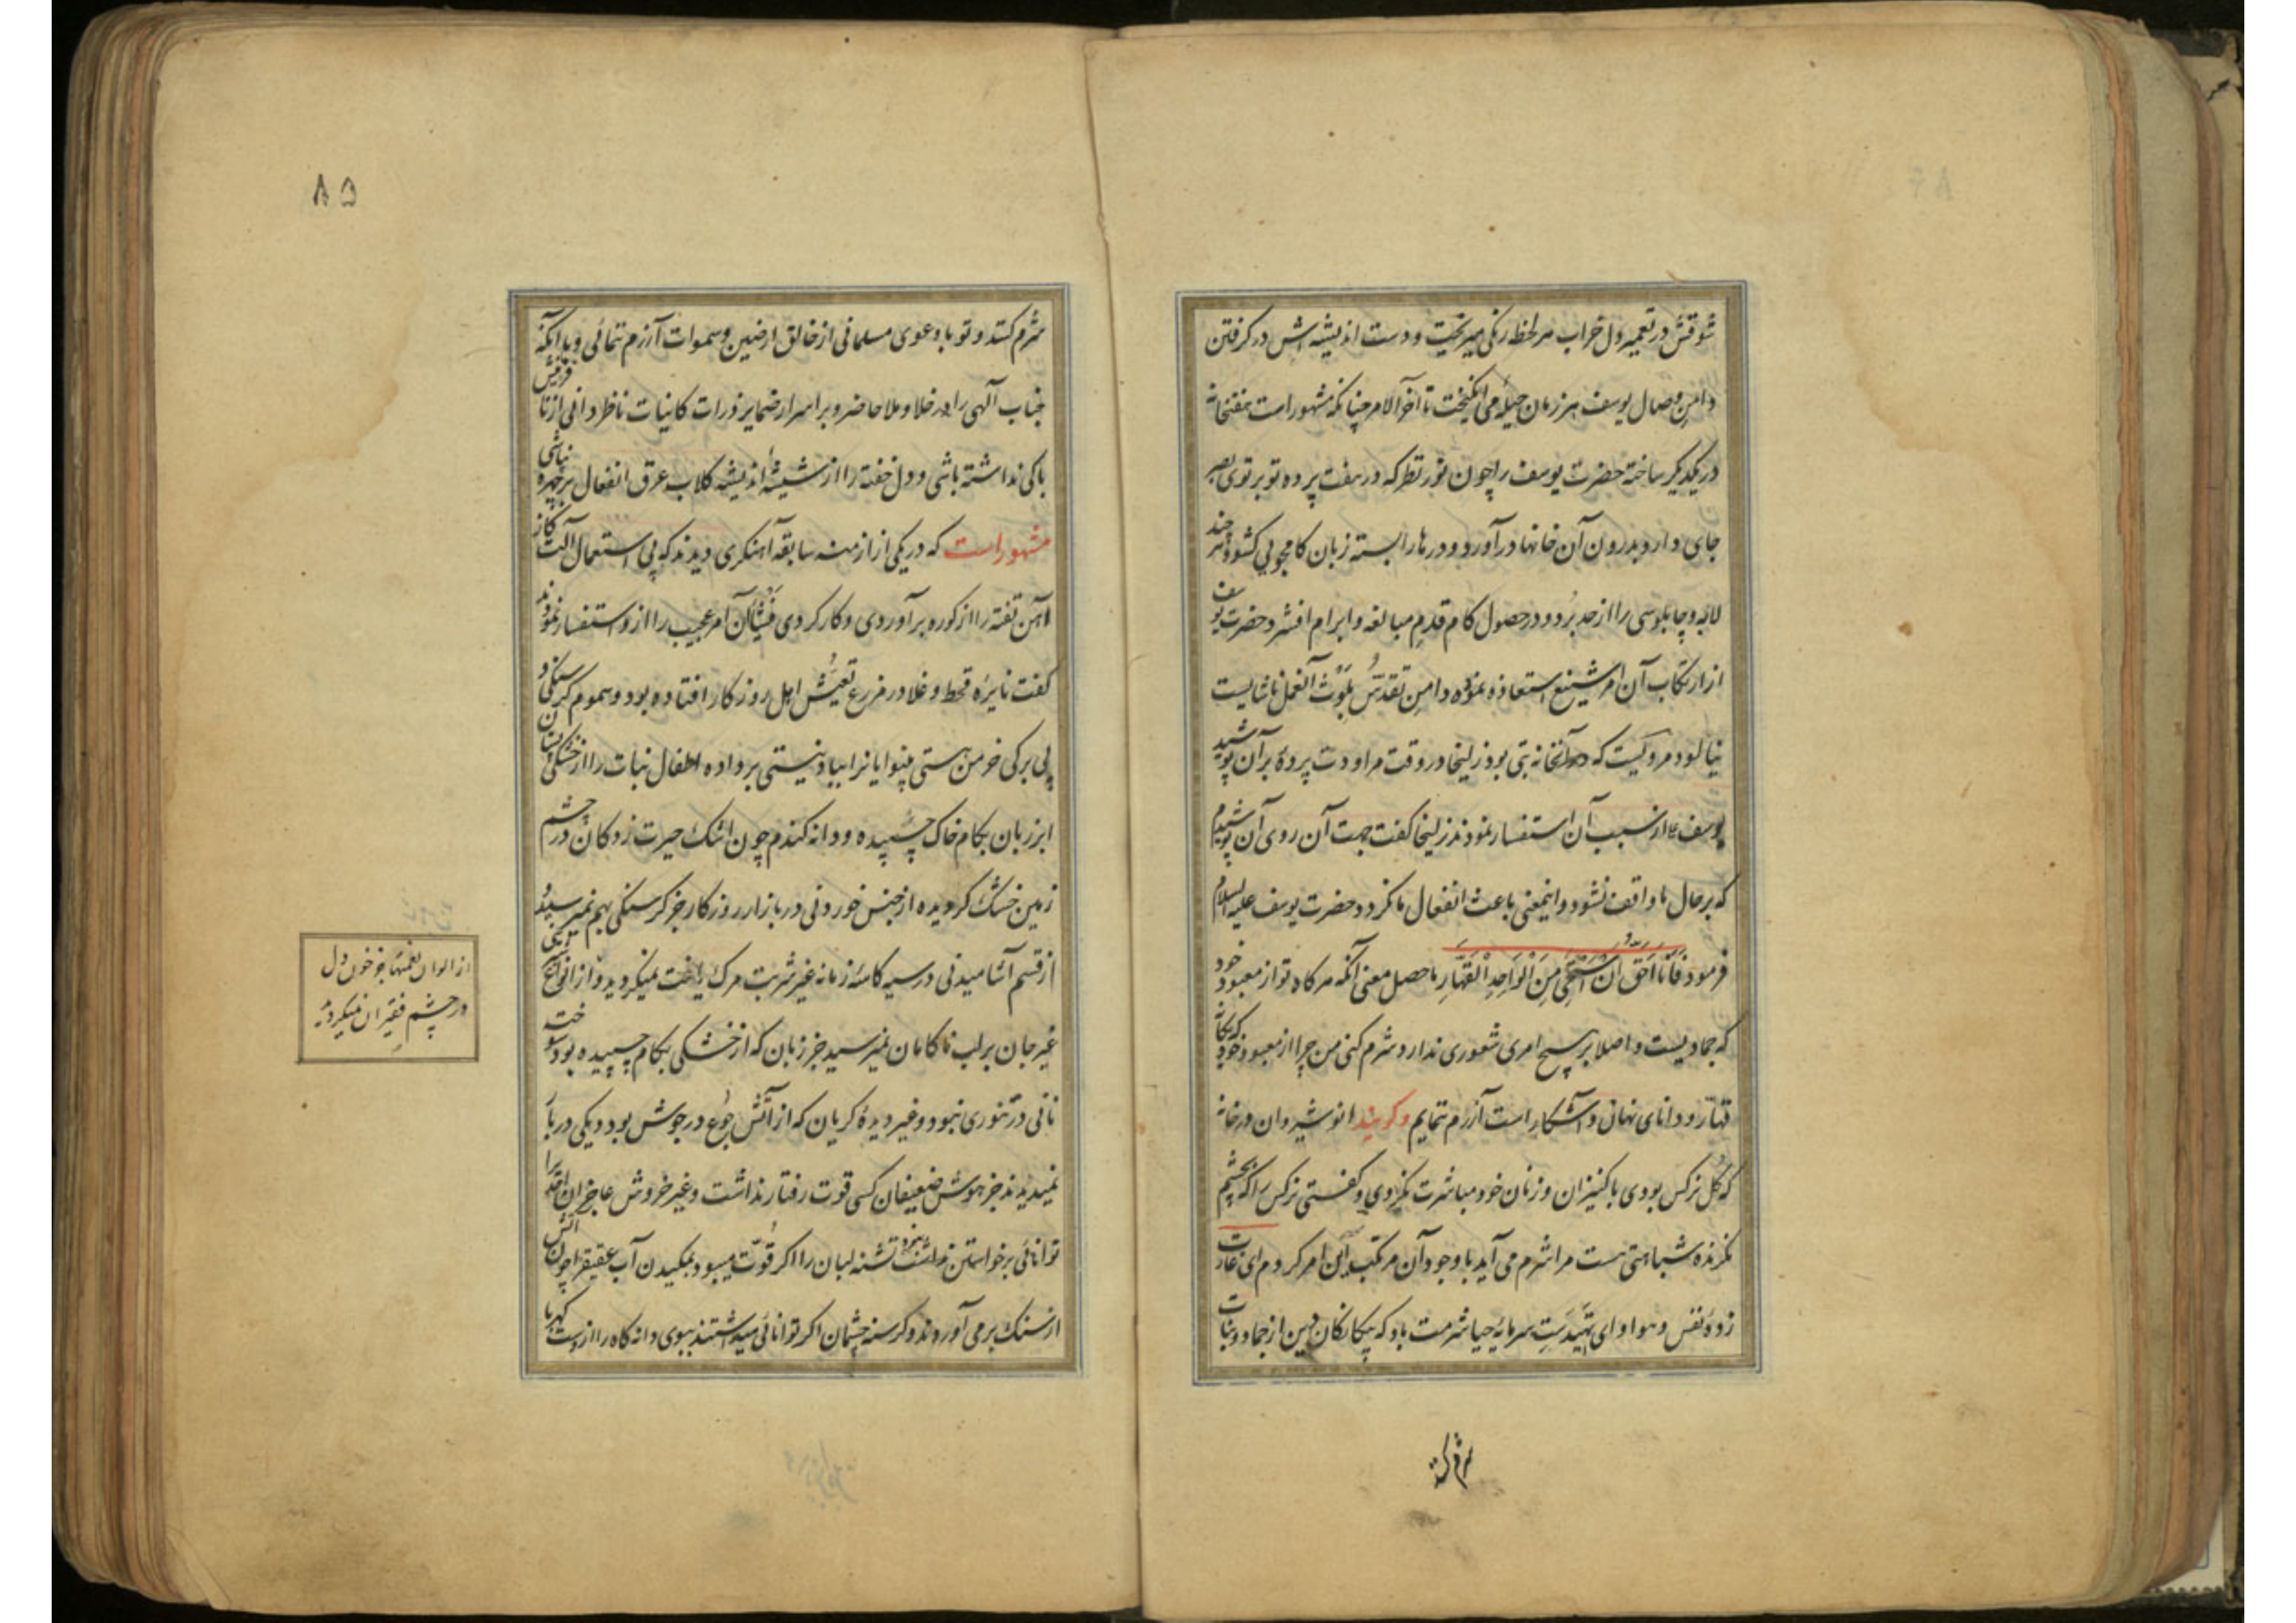 شوقش در تعمیر دل خراب هر لحظه رنگی میریخت و دست اندیشه اش در گرفتن
دامن وصال یوسف هر زمان حیلهٔ می انگیخت تا آخر الامر چنانکه مشهور است هفتخانه
در یکدیگر ساخته حضرت یوسف را چون نور نظر که در هفت پرده تو بر توی بصر
جای دارد بدرون آن خانها در آورد و درها را بسته زبان کامجویی کشود هر چند
لابه و چاپلوسی را از حد برد و در حصول کام قدم مبالغه و ابرام افشرد حضرت یوسف
از ارتکاب آن امر شنیع استعاذه نموده دامن تقدس بلوث آنعمل ناشایست
نیالود مرویست که در آنخانه بتی بود زلیخا در وقت مراودت پردهٔ بر آن پوشید
یوسف ع از سبب آن استفسار نمودند زلیخا کفت جهت آن روی آن پوشیدم
که بر حال ما واقف نشود و اینمعنی باعث انفعال ما نکردد حضرت یوسف علیه السلام
فرمود فَاَنَا اَحَقُّ اَنْ اَسْتَحْیِیَ مِنَ الْوَاحِدِ الْقَهَّارِ ماحصل معنی آنکه هر کاه تو از معبود خود
که جمادیست و اصلا بر هیچ امری شعوری ندارد شرم کنی من چرا از معبود خود که یکتا
قهار و دانای نهان و آشکار است آزرم ننمایم و کویند انوشیروان در خانه
که کل نرکس بودی با کنیزان و زنان خود مباشرت نکردی و کفتی نرکس را که بچشم
نکرنده شباهتی هست مرا شرم می آید با وجود آن مرتکب این امر کردم ای غارت
زدهٔ نفس و هوا و ای تهیدست سرمایهٔ حیا شرمت باد که بیکانکان دین از جماد و نبات
شرم کنند
۸۵
شرم کنند و تو با دعوی مسلمانی از خالق ارضین و سموات آزرم ننمائی و با آنکه
جناب آلهی را در خلا و ملا حاضر و بر اسرار ضمایر ذرات کاینات ناظر دانی از نافرمانیش
باکی نداشته باشی و دل خفته را از شیشهٔ اندیشه کلاب عرق انفعال بر چهره نپاشی
مشهور است که در یکی از ازمنه سابقه آهنکری دیدند که بی استعمال آلت کاز
آهن تفته را از کوره بر آوردی و کار کردی منشأ آن امر عجیب را از و استفسار نمودند
کفت نایرهٔ قحط و غلا در مزرع تعیش اهل روزکار افتاده بود و سموم کرسنکی و
بی برکی خرمن هستی بینوایانرا بباد نیستی بر داده اطفال نبات را از خشکی پستان
ابر زبان بکام خاک چسپیده و دانه کندم چون اشک حیرت زدکان در چشم
زمین خشک کردیده از جنس خوردنی در بازار روزکار جز کرسنکی بهم نمیرسید و
از قسم آشامیدنی در سیه کاسهٔ زمانه غیر شربت مرک یافت نمیکردید و از انواع
غیر جان بر لب ناکامان نمیرسید جز زبان که از خشکی بکام چسپیده بود سوخته
نانی در تنوری نبود و غیر دیدهٔ کریان که از آتش جوع در جوش بود دیکی در بار
نمیدیدند جز هوش ضعیفان کسی قوت رفتار نداشت و غیر خروش عاجزان احدیرا
توانائی برخواستن نداشت تشنه لبان را اکر قوت میبود بمکیدن آب عقیق را چون آتش
از سنک بر می آوردند و کرسنه چشمان اکر توانائی میداشتند ببوی دانه کاه را از دست کهربا
از الوان نعمتها جز خون دل
در چشم فقیران نمیکردید